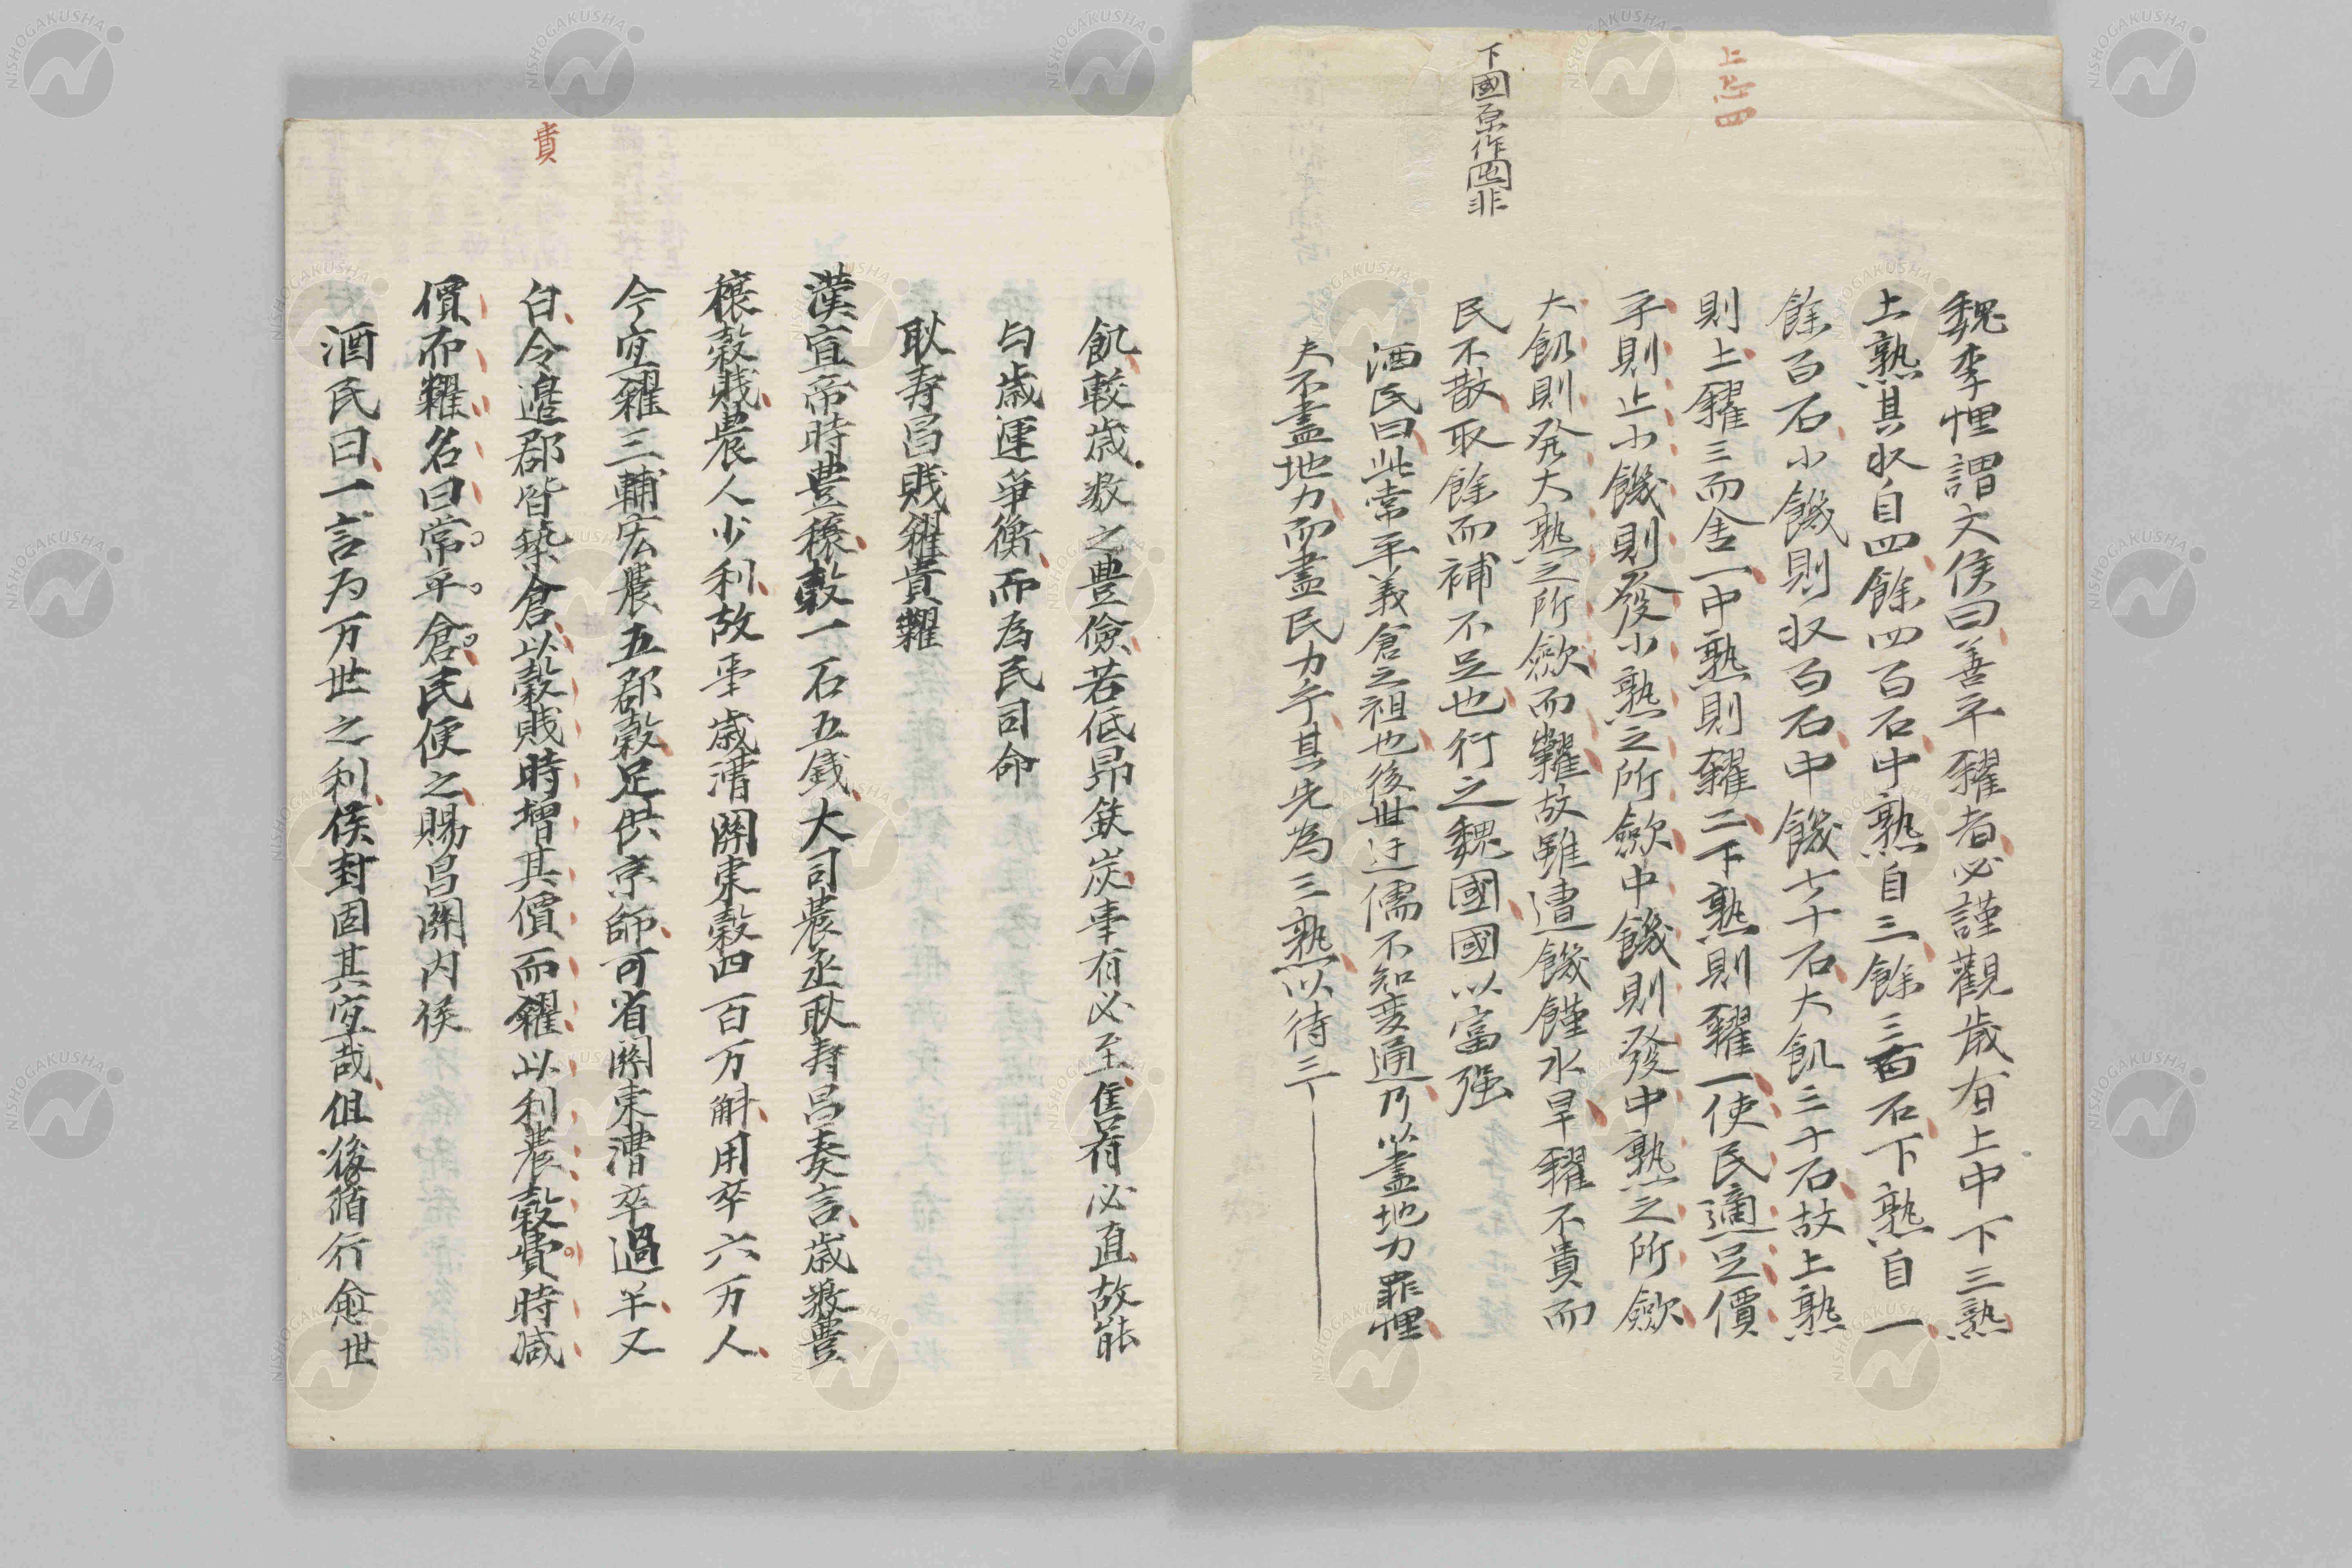 上点四
下國原作四非
魏李悝謂文侯曰善平糴者必謹觀歳有上中下三熟
上熟其収自四餘四百石中熟自三餘三百石下熟自一
餘百石小饑則収百石中饑七十石大飢三十石故上熟
則上糴三而舎一中熟則糴二下熟則糴一使民適足價
平則止小饑則發小熟之所斂中饑則發中熟之所斂
大飢則発大熟之所斂而糶故雖遭饑饉水旱糴不貴而
民不散取餘而補不足也行之魏國國以富强
酒民曰此常平義倉之祖也後世迂儒不知変通乃以盡地力罪悝
夫不盡地力而盡民力乎其先為三熟以待三
貴
飢較歳数之豊儉若低昻鉄炭事有必至售荷必直故能
与歳運爭衡而為民司命
耿寿昌賎糴貴糶
漢宣帝時豊穣穀一石五銭大司農丞耿寿昌奏言歳数豊
穣穀賎農人少利故事歳漕關東穀四百万斛用卒六万人
今宜糴三輔宏農五郡穀足供京師可省關東漕卒過半又
白令邉郡皆築倉以穀賎時增其價而糴以利農穀費時减
價而糶名曰常平倉民便之賜昌關内侯
酒民曰一言为万世之利侯封固其宜哉但後循行愈世